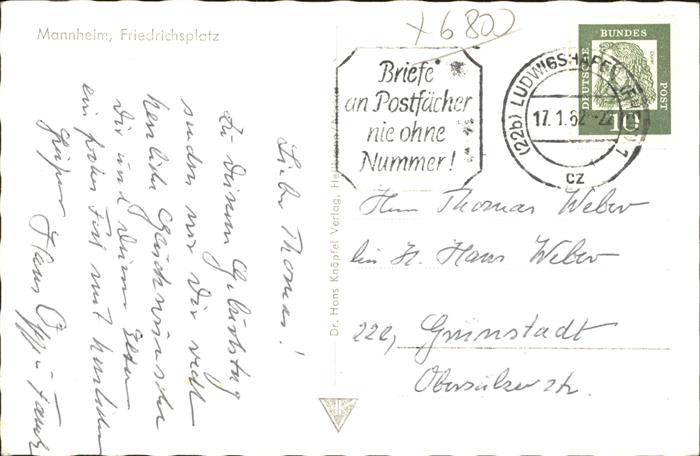 Mannheim, Friedrichsplatz
+ 6800
Briefe
an Postfächer
nie ohne
Nummer!
(22b) LUDWIGSHAFEN
17.1.62
cz
DEUTSCHE BUNDESPOST
Dürer
10
Lieber Thomas!
Zu Deinem Geburtstag
senden wir Dir recht
herzliche Glückwünsche
Dir und Deinen Eltern
ein frohes Fest mit herzlichen
Grüßen Hans
Dr. Hans Knöpfel Verlag,
Herrn Thomas Weber
bei H. Hans Weber
22b, Grünstadt
Obersülzer str.